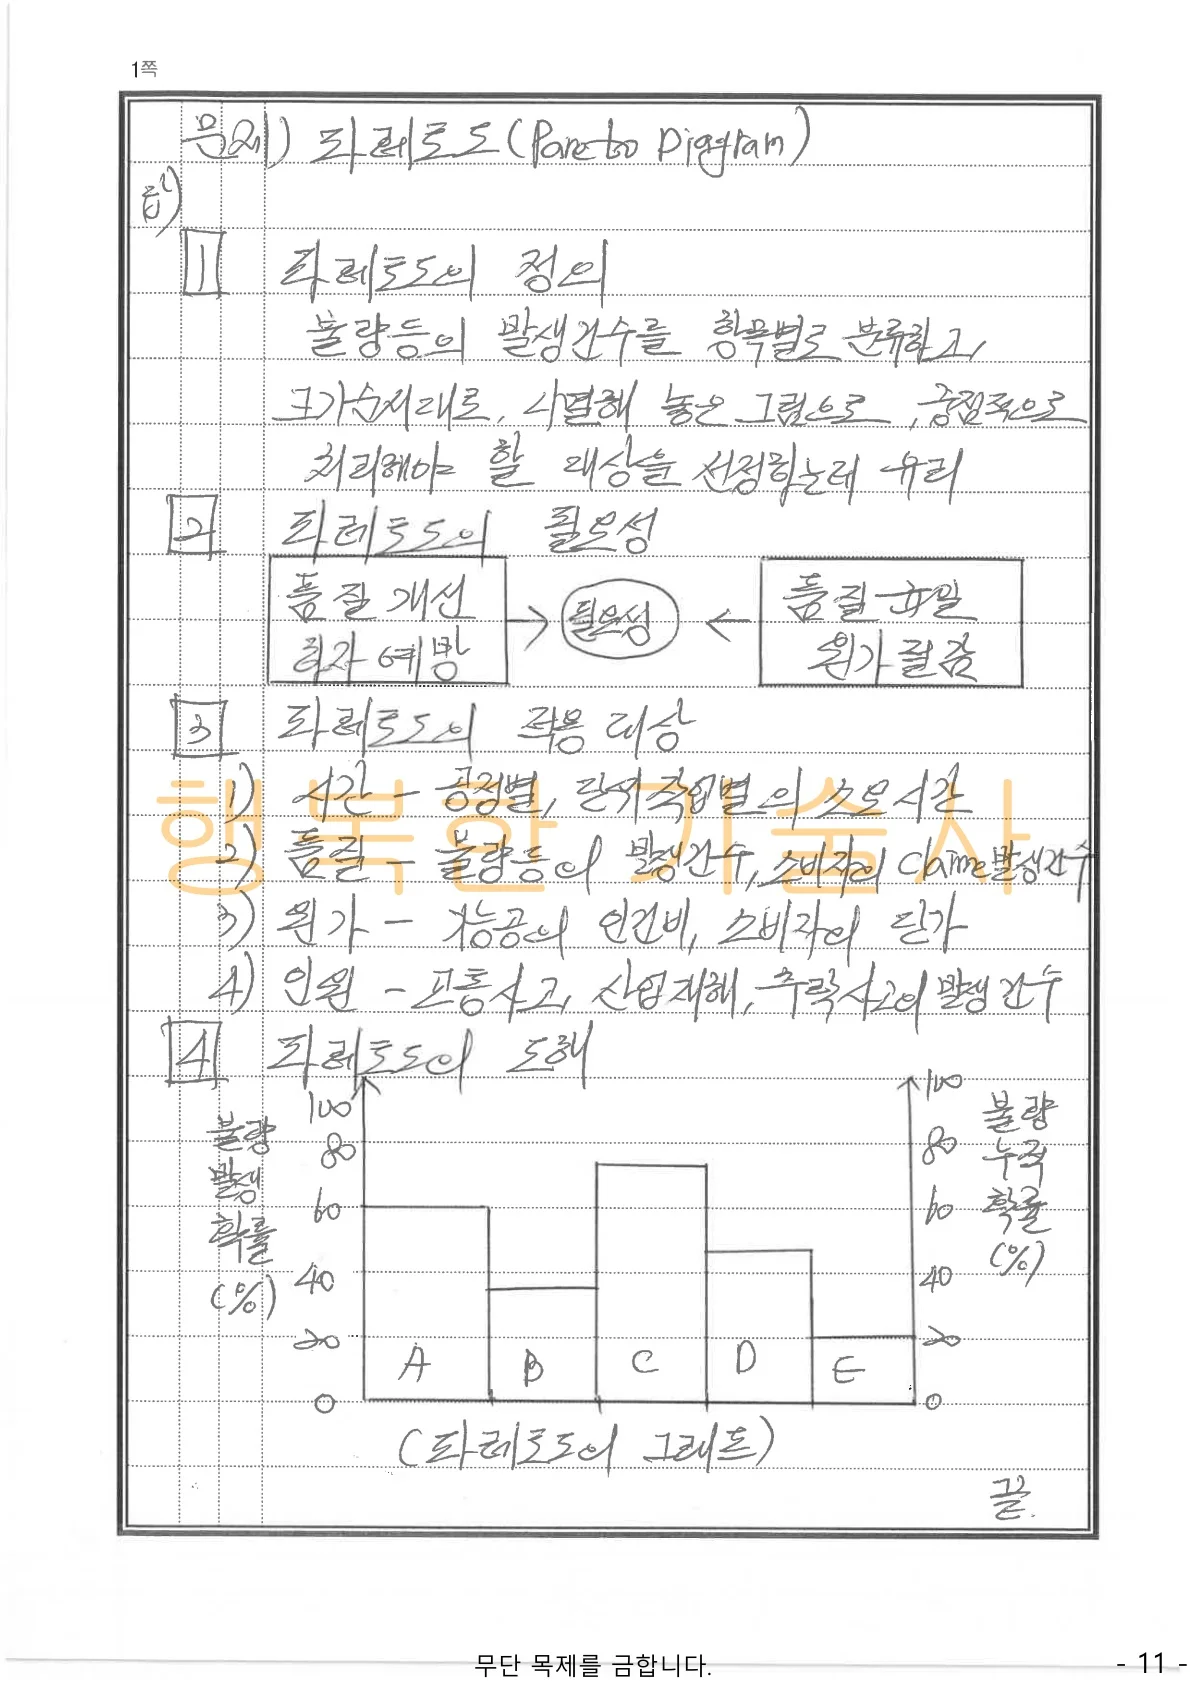 1쪽
문제) 파레토도(Pareto Diagram)
답)
1 파레토도의 정의
불량등의 발생건수를 항목별로 분류하고,
크기순서대로, 나열해 놓은 그림으로, 중점적으로
처리해야 할 대상을 선정하는데 유리
2 파레토도의 필요성
품질 개선
하자 예방
→ 필요성 ←
품질 균일
원가 절감
3 파레토도의 적용 대상
1) 시간 - 공정별, 단위작업별의 소요시간
2) 품질 - 불량등의 발생건수, 소비자의 Claime발생건수
3) 원가 - 기능공의 인건비, 소비자의 단가
4) 인원 - 교통사고, 산업재해, 추락사고의 발생건수
행복한 기술사
4 파레토도의 도해
불량
발생
확률
(%)
100
80
60
40
20
0
A B C D E
100
80
60
40
20
0
불량
누적
확률
(%)
(파레토도의 그래프)
끝.
무단 목제를 금합니다.
- 11 -